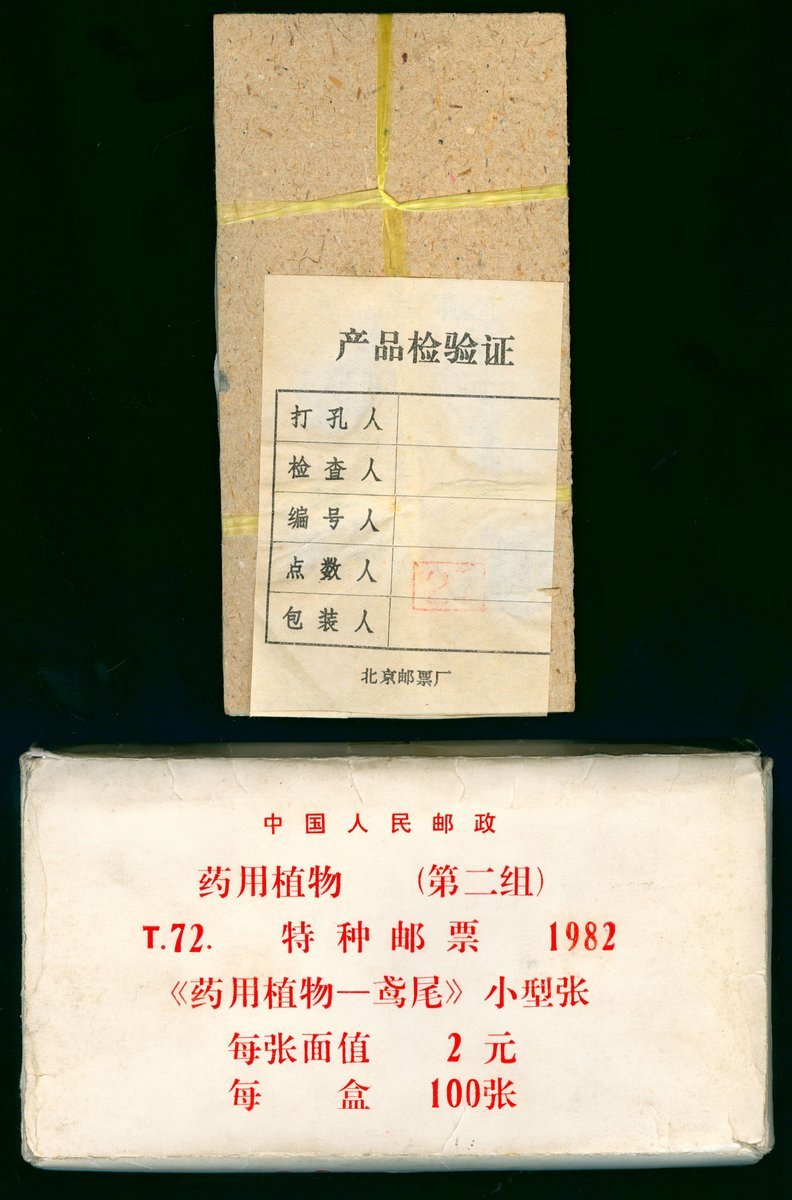 产品检验证
打孔人
检查人
编号人
点数人
包装人
北京邮票厂
中国人民邮政
药用植物 (第二组)
T.72. 特种邮票 1982
《药用植物—鸢尾》小型张
每张面值 2元
每盒 100张